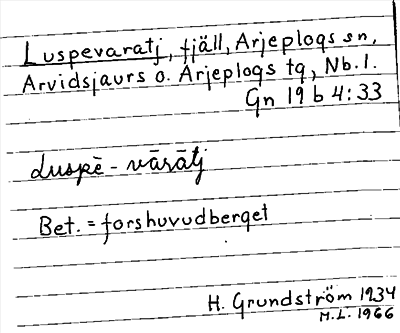 Luspevaratj, fjäll, Arjeplogs sn,
Arvidsjaurs o. Arjeplogs tg, Nb. l.
Gn 19 b 4:33
luspē - vārātj
Bet. = forshuvudberget
H. Grundström 1934
M.L. 1966